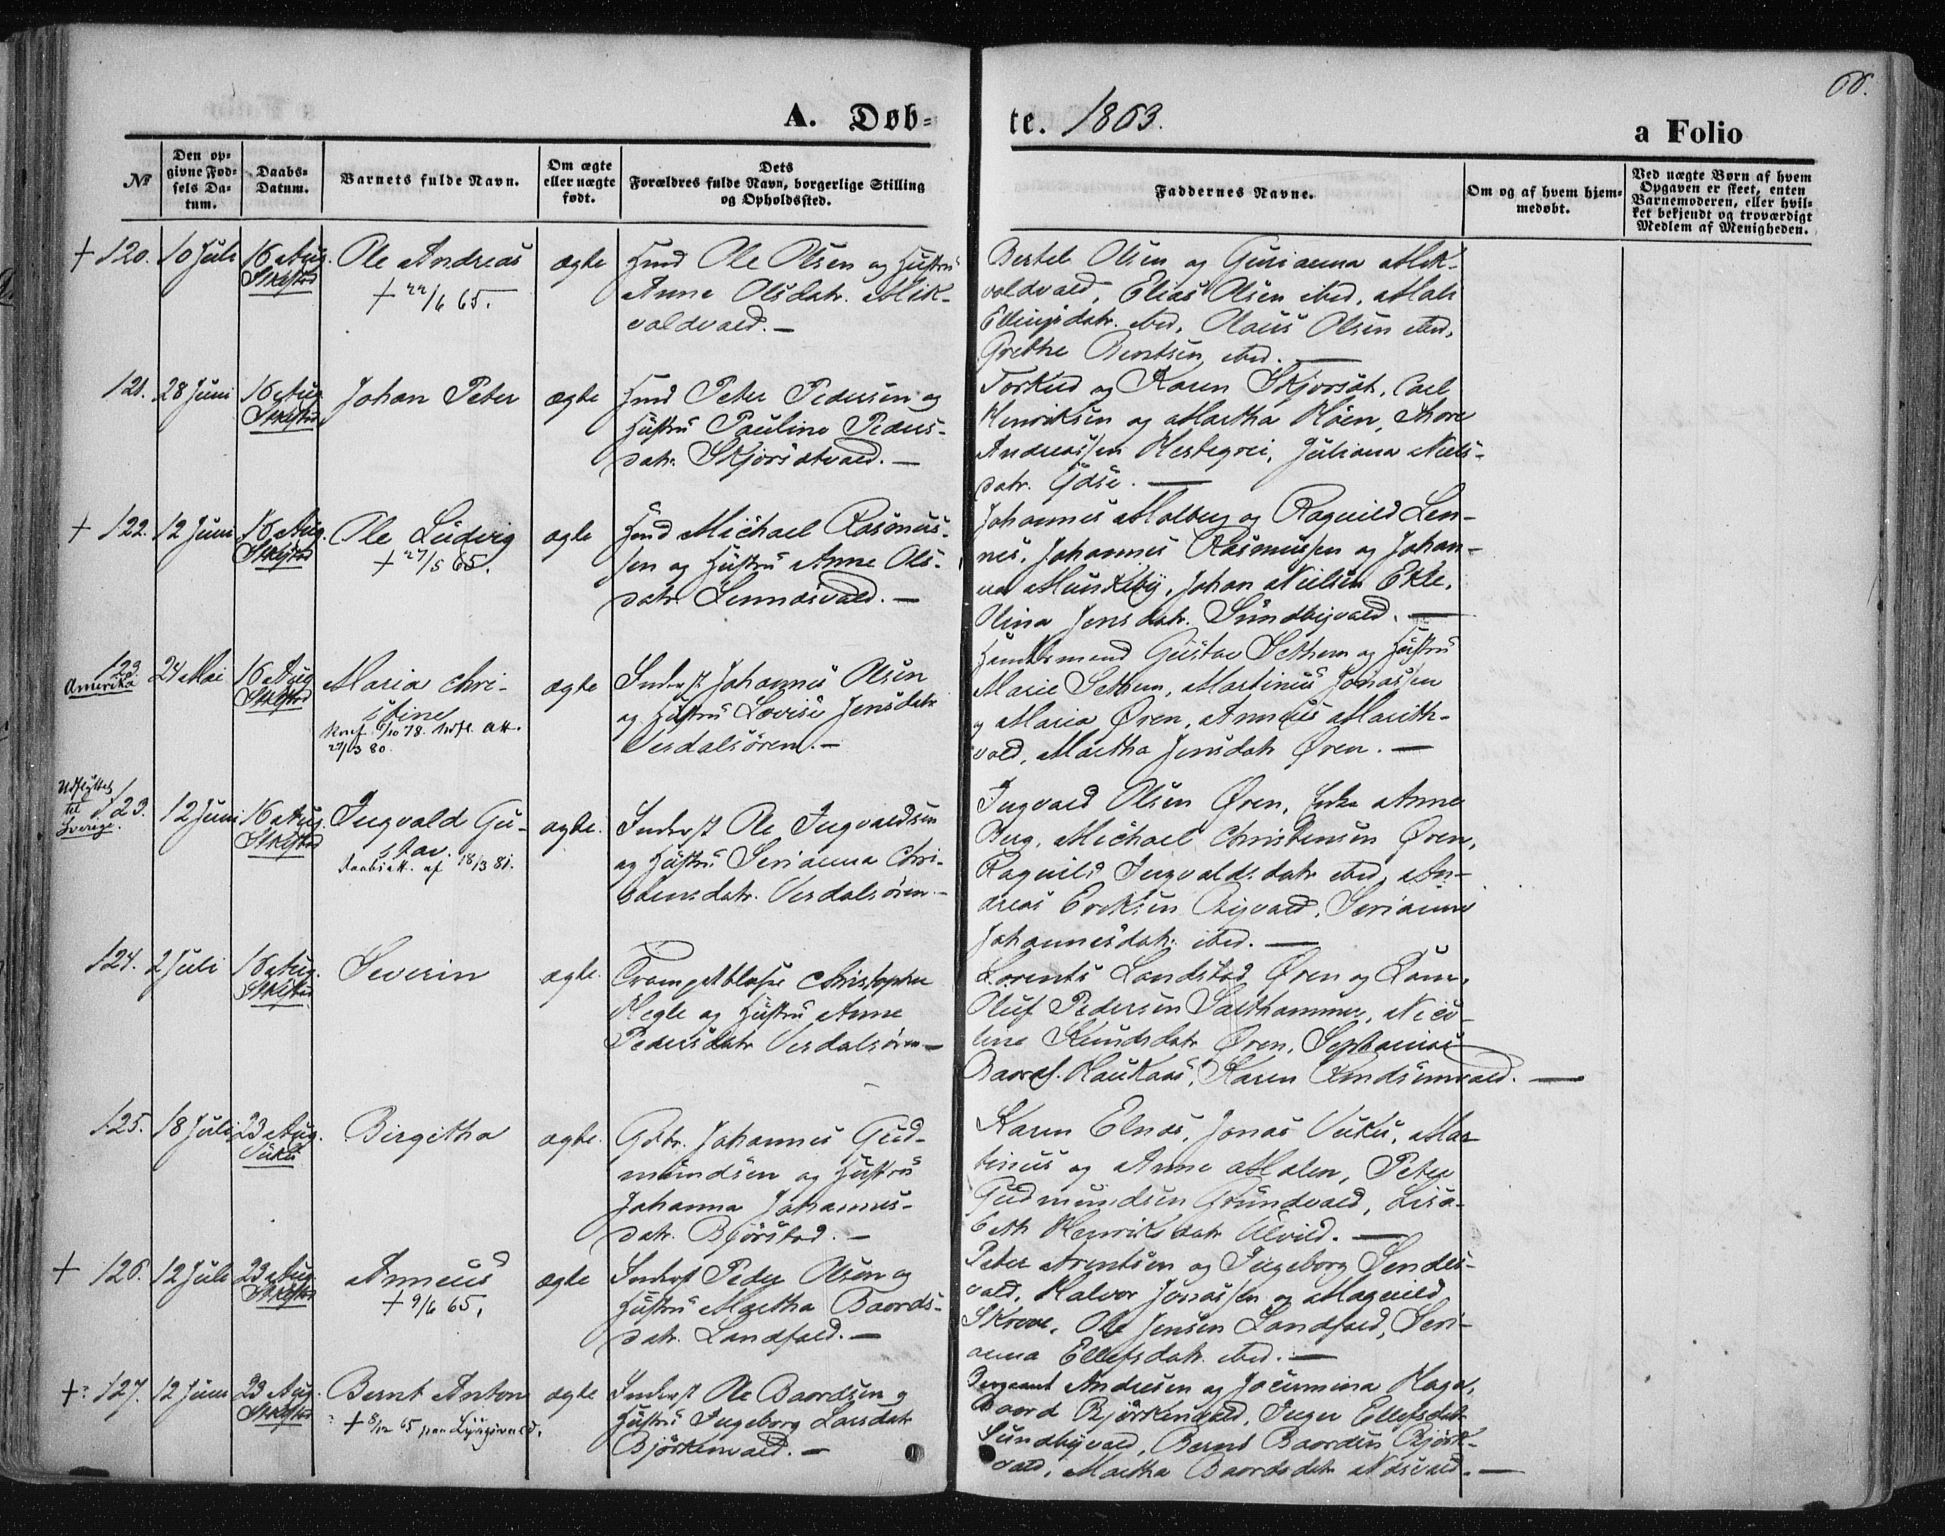 66.
A. Døb-
te. 1863.
a Folio
No
Den op-
givne Fød-
sels Da-
tum.
Daabs-
Datum.
Barnets fulde Navn.
Om ægte
eller uægte
født.
Dets
Forældres fulde Navn, borgerlige Stilling
og Opholdssted.
Faddernes Navne.
Om og af hvem hjem-
medøbt.
Ved uægte Børn af hvem
Opgaven er skeet, enten
Barnemoderen, eller hvil-
ket bekjendt og troværdigt
Medlem af Menigheden.
+ 120. 10 Juli 16 Aug.
Ole Andreas
+ 22/6 65.
ægte
Ole Olsen og Hustru
Anne Olsdatr. Mik-
voldvald. —
Bertel Olsen og Gurianna Mik-
voldvald, Elias Olsen ibid, Mali
Ellingsdatr. ibid, Olaus Olsen ibid,
Grethe Berntsen ibid. —
121. 28 Juni 16 Aug.
Johan Peter
ægte
Peter Pedersen og
Hustru Pauline Peders-
datr. Skjørsætvald. —
Torkild og Karen Skjørsæt, Carl
Henriksen og Martha Høen, Thore
Andreassen Hestegrei, Juliana Niels-
datr. —
+ 122. 12 Juni 16 Aug.
Ole Ludvig
+ 27/5 65.
ægte
Michael Rasmus-
sen og Hustru Anne Ols-
datr. Lennæsvald. —
Johannes Molberg og Ragnild Len-
næs, Johannes Rasmussen og Johan-
na Mundkby, Johan Nielsen Ekle,
Olina Jensdatr. Sundbyvald. —
123. 24 Mai 16 Aug
Amerika
Maria Chri-
stine
Konf 6/10 78.
27/3 80.
ægte
Inderst Johannes Olsen
og Hustru Lovise Jensdatr
Verdalsøren. —
Gustav Sethem og Hustru
Marie Sethem, Martinus Jonassen
og Maria Øren, Anneus Marith-
vald, Martha Jensdatr Øren. —
Udflyttet
til
Sverige.
123. 12 Juni 16 Aug.
Ingvald Gu-
stav.
Daabsatt. af 18/3 81.
ægte.
Inderst Ole Ingvaldsen
og Hustru Serianna Chri-
stensdatr. Verdalsøren. —
Ingvald Olsen Øren, Enke Anne
Berg, Michael Christensen Øren,
Ragnild Ingvaldsdatr ibid, An-
dreas Eriksen Byvald, Serianna
Johannesdatr. ibid. —
124. 2 Juli 16 Aug.
Severin
ægte.
Trompetblæser Christopher
Hegle og Hustru Anne
Pedersdatr Verdalsøren —
Lorents Landstad Øren og
Oluf Pedersen Salthammer, Nico-
line Knudsdatr Øren, Sephanias
Baards. Haukaas, Karen —
125. 18 Juli 23 Aug.
Vuku
Birgitha
ægte.
Gdbr. Johannes Gud-
mundsen og Hustru
Johanna Johannes-
datr. Bjørstad. —
Karen Elnæs, Jonas Vuku, Mar-
tinus og Anne Molen, Peter
Gudmundsen Grundvald, Lisa-
beth Henriksdatr Ulvild. —
+ 126. 12 Juli 23 Aug.
Anneus
+ 9/6 65.
ægte
Inderst Peder Olsen og
Hustru Martha Baards-
datr. Landfald. —
Peter Arentsen og Ingeborg Sendes-
vald, Halvor Jonassen og Magnild
Skrove, Ole Jensen Landfald, Seri-
anna Ellefsdatr. ibid. —
+ 127. 12 Juni 23 Aug.
Bernt Anton
+ 8/12 65 paa Lyngvald.
ægte
Inderst Ole Baardsen og
Hustru Ingeborg Larsdatr
Bjørkenvald. —
Sergeant Andresen og Jocumina Haga,
Baard Bjørkenvald, Inger Ellefsdatr
Sundbyvald, Bernt Baardsen Bjørk-
vald, Martha Baardsdatr Næsvald. —